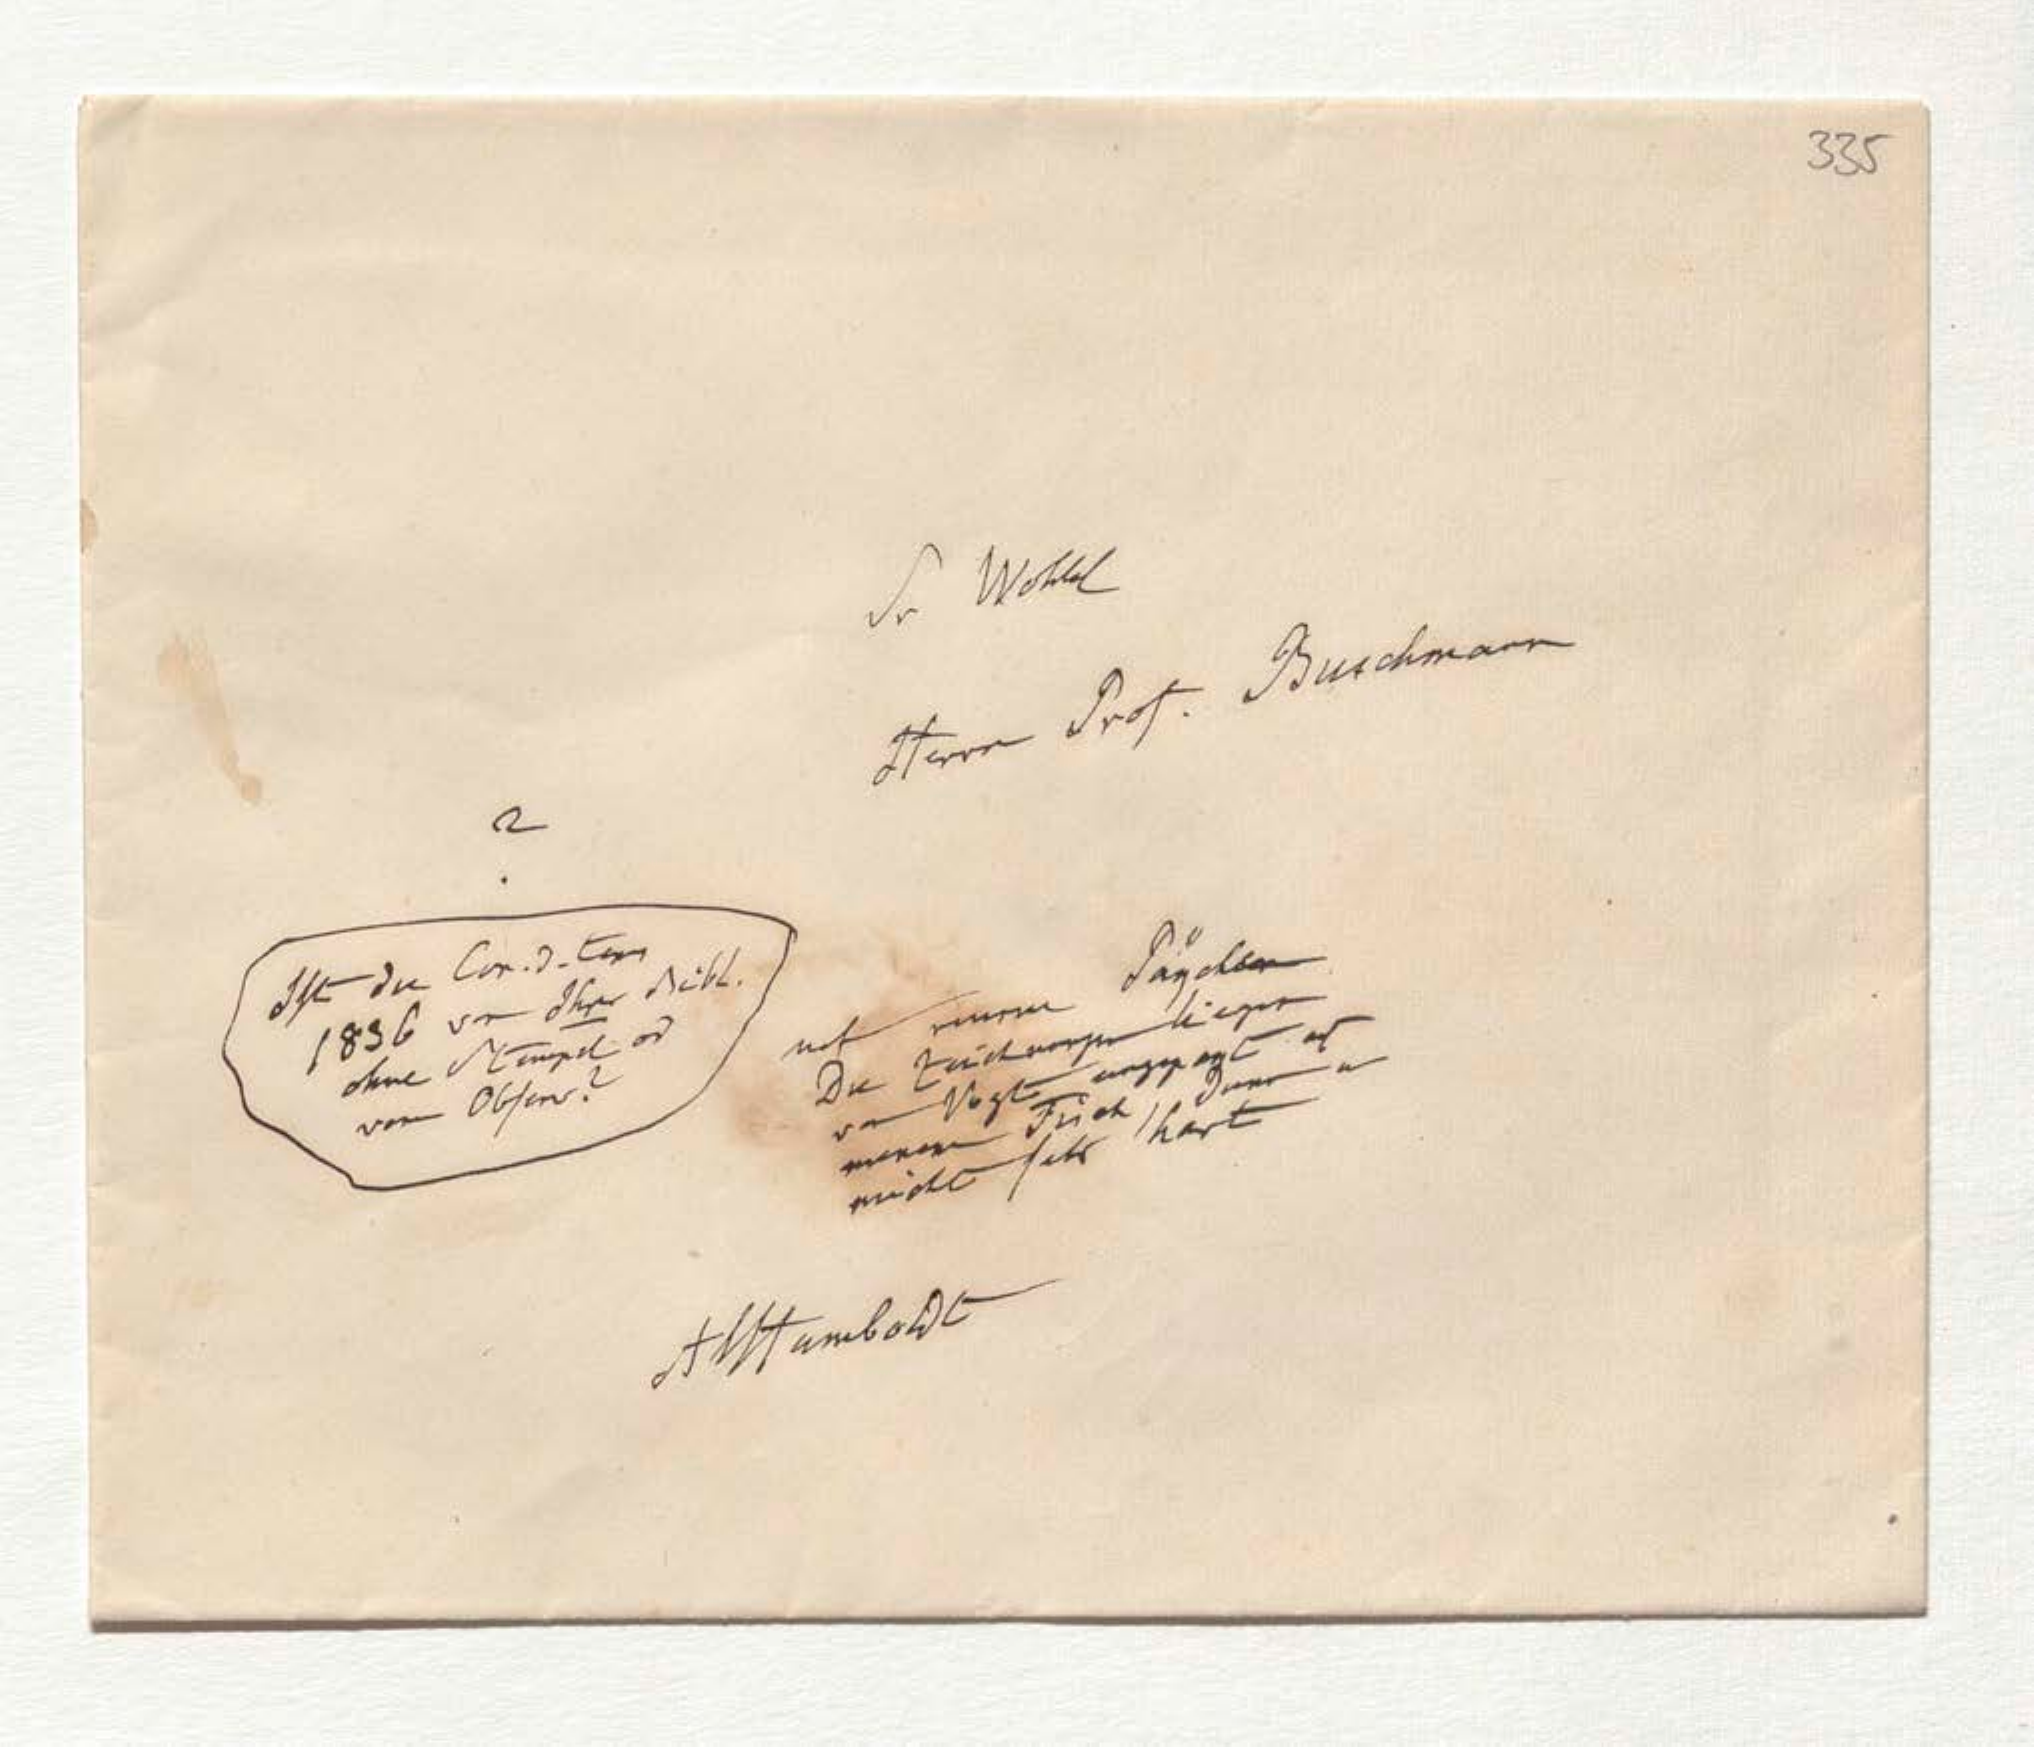 335
Sr Wohlel
Herrn Prof. Buschmann
?
Ist die Con. d. tems
1836 von Ihrer Bibl.
ohne Stempel od
vom Observ.?
mit einem Päckchen
Die Zeichnungen liegen
von Vogt angezeigt auf
meinem Tisch
nicht sehr hart
AlHumboldt